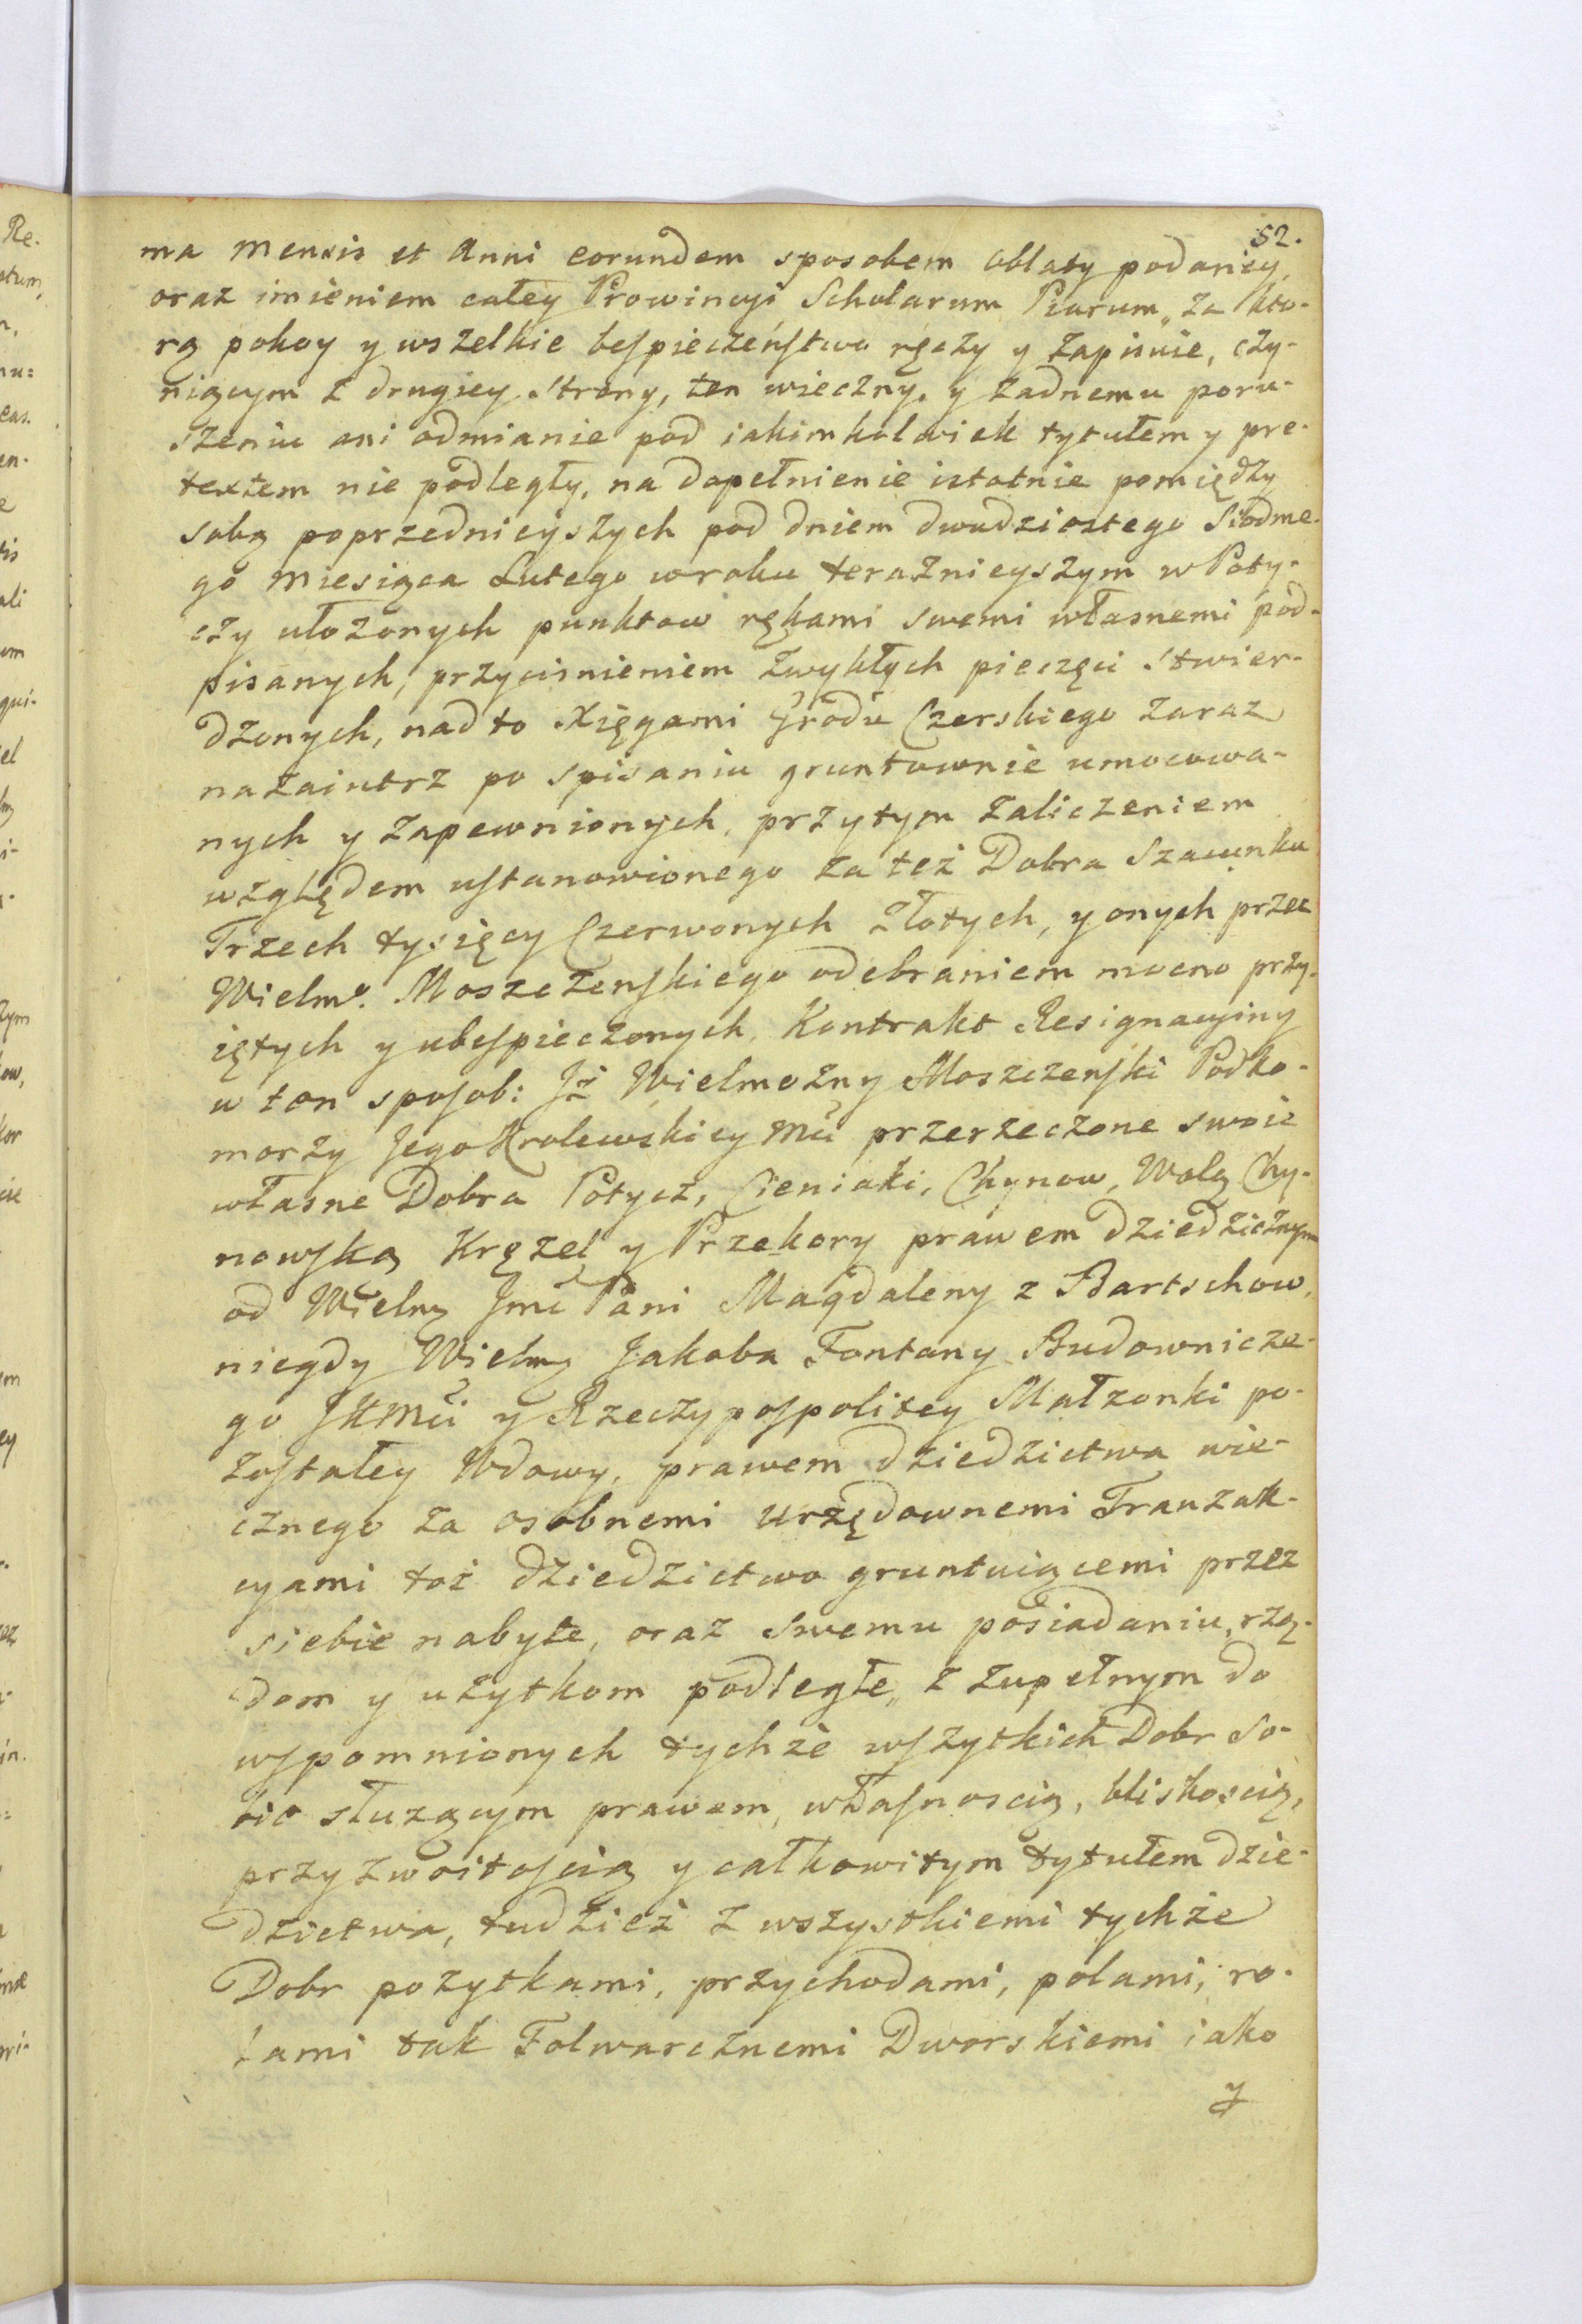 52.
ma Mensis et Anni eorundem sposobem oblaty podaney,
oraz imieniem całey Prowincyi Scholarum Piarum„ za kto-
rą pokoy y wszelkie bespieczeństwo ręczy y zapisuie, czy-
niącym z drugiey strony, ten wieczny, y zadnemu poru-
szeniu ani odmianie pod iakimkolwiek tytułem y pre-
textem nie podległy, na dopełnienie istotnie pomiędzy
sobą poprzednieyszych pod dniem dwudziestego Siodme-
go Miesiąca Lutego w roku teraznieyszym w Poty-
czy ułozonych punktow rękami swemi własnemi pod-
pisanych, przycisnieniem zwykłych pieczęci stwier-
dzonych, nad to Xięgami Grodu Czerskiego zaraz
nazaiutrz po spisaniu gruntownie umocowa-
nych y zapewnionych, przytym zaliczeniem
względem ustanowionego za też Dobra Szacunku
Trzech tysięcy Czerwonych Złotych, y onych przez
Wielmo. Moszczenskiego odebraniem mocno przy-
iętych y ubespieczonych, Kontrakt Resignacyiny
w ten sposob: Jż Wielmozny Moszczenski Podko-
morzy Jego Krolewskiey Mci przerzeczone swoie
własne Dobra Potycz, Cieniaki, Chynow, Wolą Chy-
nowską Kręzel y Przekory prawem dziedzicznym
od Wielny Jmci Pani Magdaleny z Bartschow,
niegdy Wielny Jakoba Fontany Budownicze-
go JKMci y Rzeczypospolitey Małzonki po-
zostałey Wdowy, prawem dziedzictwa wie-
cznego za osobnemi urzędownemi Tranzak-
cyami toż dziedzictwo gruntuiącemi przez
siebie nabyte, oraz swemu posiadaniu, rzą-
dom y użytkom podległe„ z zupełnym do
wspomnionych tychże wszytkich Dobr so-
bie słuzącym prawem, własnoscią, bliskoscią,
przyzwoitoscią y całkowitym tytułem dzie-
dzictwa, tudzież z wszystkiemi tychże
Dobr pozytkami, przychodami, polami, ro-
lami tak Folwarcznemi Dworskiemi iako
y